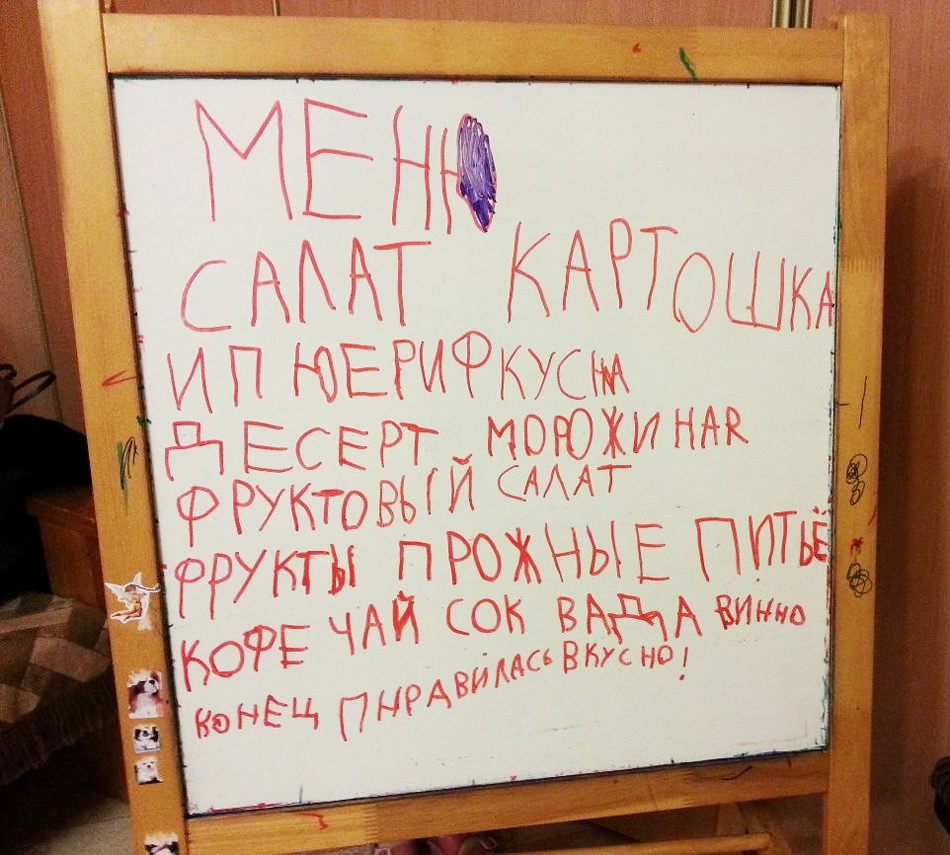 МЕНЮ
САЛАТ КАРТОШКА
ИПЮЕРИФКУСНА
ДЕСЕРТ МОРОЖИНАЯ
ФРУКТОВЫЙ САЛАТ
ФРУКТЫ ПРОЖНЫЕ ПИТЬЁ
КОФЕ ЧАЙ СОК ВАДА ВИННО
КОНЕЦ ПНРАВИЛАСЬ ВКУСНО!